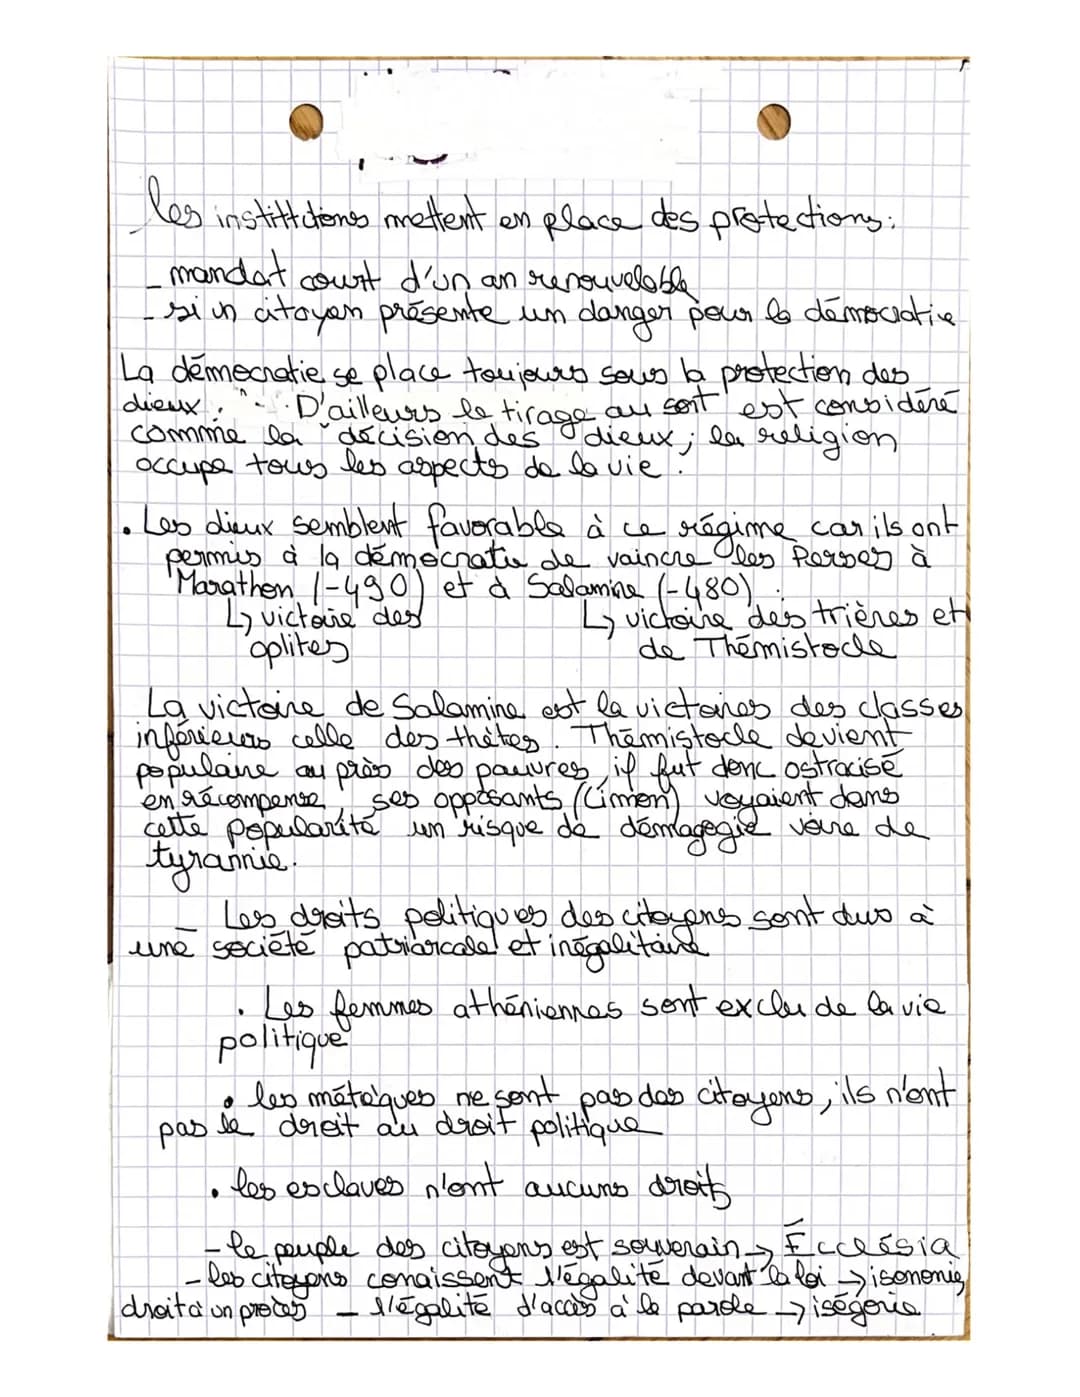 les instittitions mettent en place des protections :
- mandat court d'un an renouvelable
- si un citoyen présente un danger pour la démocratie
La démocratie se place toujours sous la protection des
dieux : D'ailleurs le tirage au sort est considéré
comme la décision des dieux ; la religion
occupe tous les aspects de la vie.
• Les dieux semblent favorable à ce régime car ils ont
permis à la démocratie de vaincre les Perses à
Marathon (-490) et à Salamine (-480).
↳ victoire des ↳ victoire des trières et
oplites de Thémistocle
La victoire de Salamine est la victoires des classes
inférieurs celle des thètes. Thémistocle devient
populaire au près des pauvres, il fut donc ostracisé
en récompense, ses opposants (Cimon) voyaient dans
cette popularité un risque de démagogie voire de
tyrannie.
_ Les droits politiques des citoyens sont dus à
une société patriarcale et inégalitaire
• Les femmes athéniennes sont exclu de la vie
politique
• les métèques ne sont pas des citoyens, ils n'ont
pas le droit au droit politique
• les esclaves n'ont aucuns droits
- le peuple des citoyens est souverain → Écclésia
- les citoyens conaissent l'égalité devant la loi → isonomie,
droit à un procès - l'égalité d'accès à la parole → iségorie